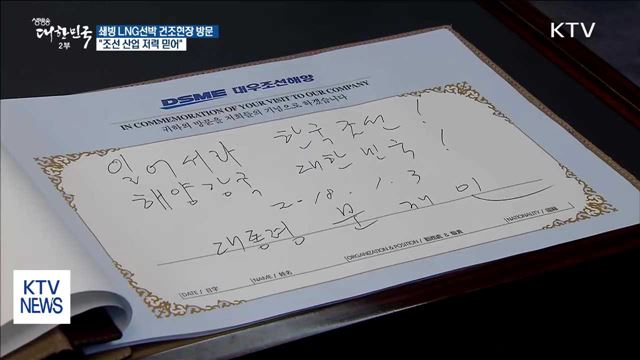 생방송
대한민국
2부
쇄빙 LNG선박 건조현장 방문
"조선 산업 저력 믿어"
KTV
DSME 대우조선해양
IN COMMEMORATION OF YOUR VISIT TO OUR COMPANY
귀하의 방문을 저희들의 기념으로 하겠습니다
일어서라 한국조선!
해양강국 대한민국!
2018. 1. 3
대통령 문재인
DATE / 日字
NAME / 姓名
ORGANIZATION & POSITION /
NATIONALITY / 國籍
KTV
NEWS